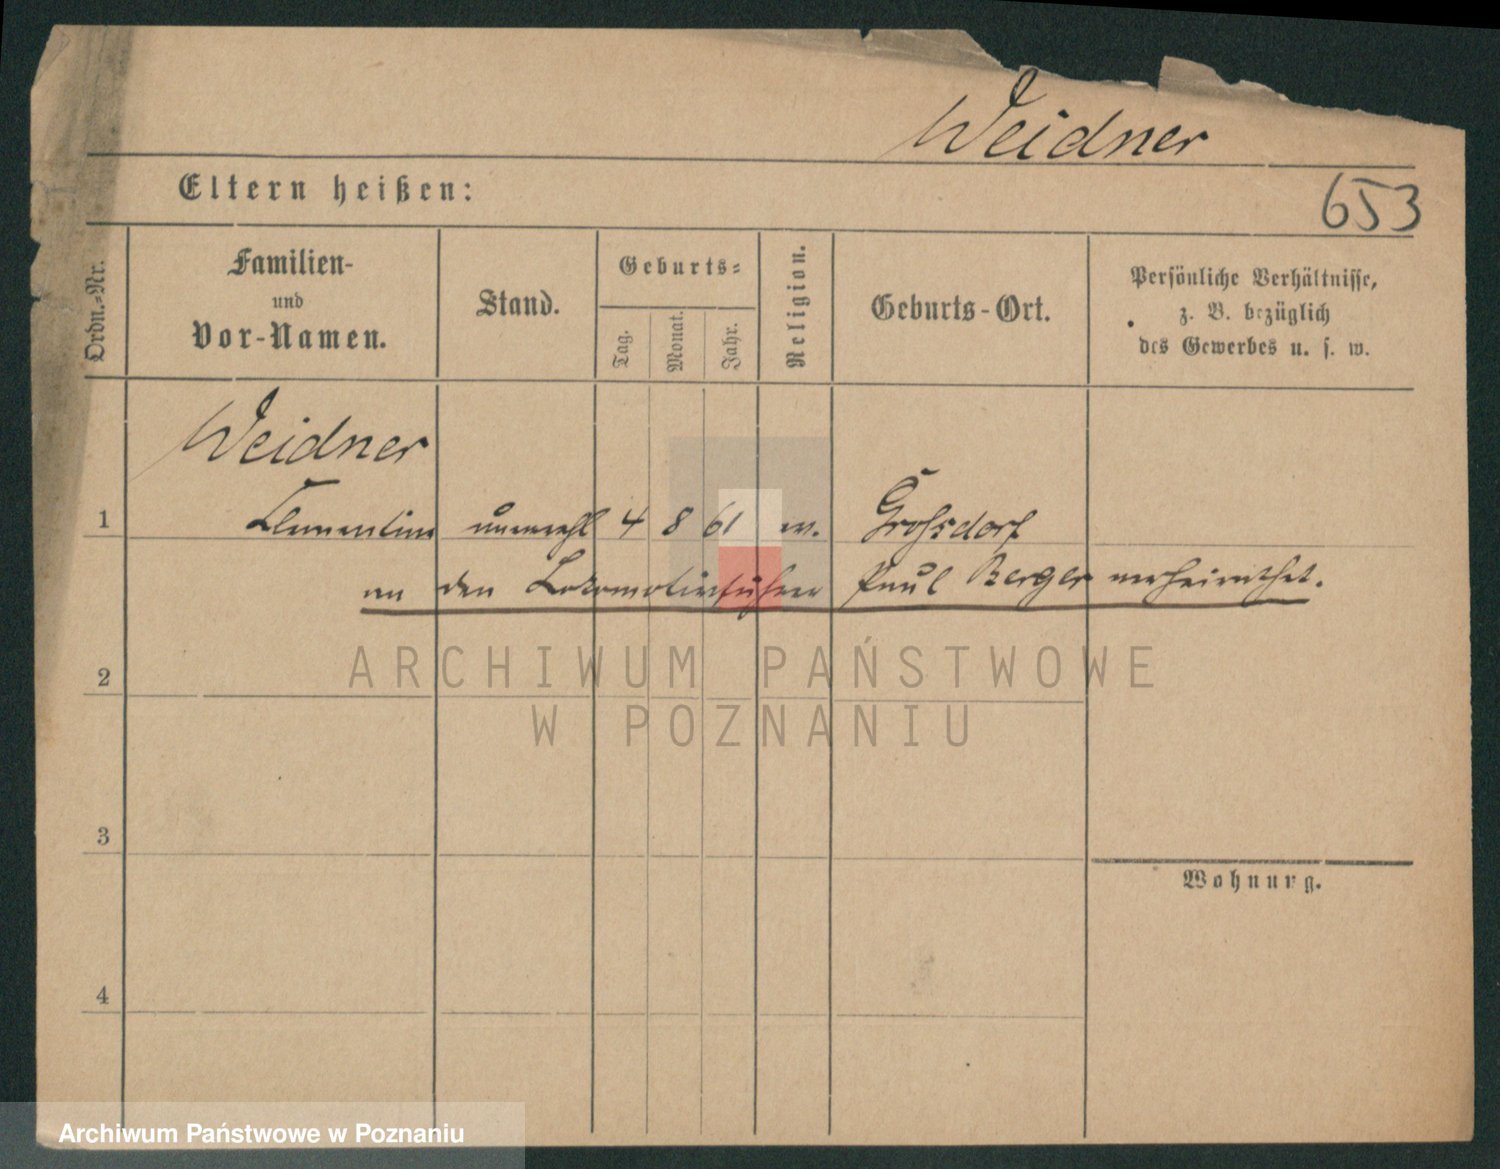 Weidner
653
Eltern heißen:
Ordn.-Nr.
Familien-
und
Vor-Namen.
Stand.
Geburts-
Tag.
Monat.
Jahr.
Religion.
Geburts-Ort.
Persönliche Verhältnisse,
z. B. bezüglich
des Gewerbes u. s. w.
Weidner
1 Clementine unverehl 4 8 61 ev. Grossdorf
an den Lokomotivführer Paul Berger verheirathet.
ARCHIWUM PAŃSTWOWE
W POZNANIU
2
3
Wohnung.
4
Archiwum Państwowe w Poznaniu